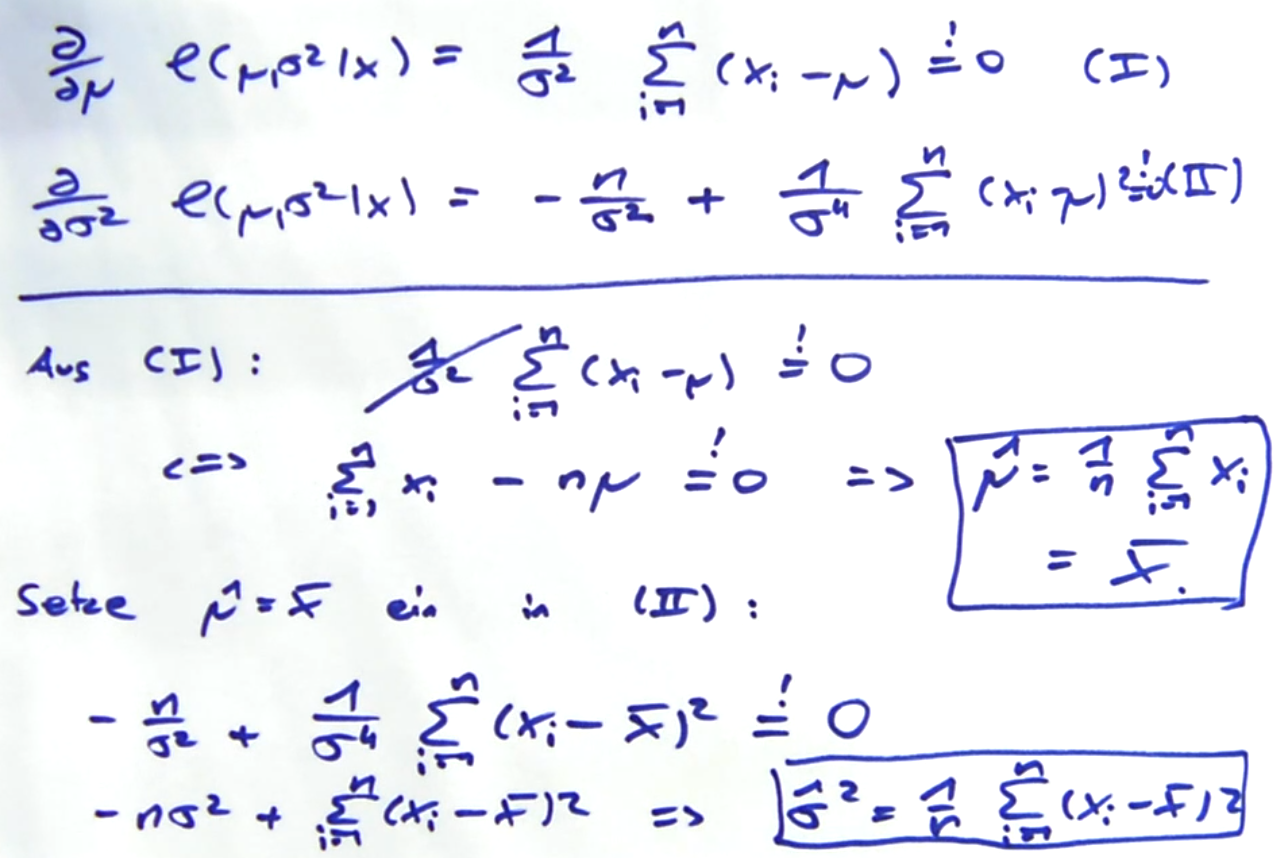 ∂/∂μ ℓ(μ,σ²|x) = 1/σ² ∑_{i=1}^{n} (x_i - μ) =! 0 (I)
∂/∂σ² ℓ(μ,σ²|x) = - n/σ² + 1/σ⁴ ∑_{i=1}^{n} (x_i - μ)² =! 0 (II)
Aus (I): 1/σ² ∑_{i=1}^{n} (x_i - μ) =! 0
<=> ∑_{i=1}^{n} x_i - nμ =! 0 => μ̂ = 1/n ∑_{i=1}^{n} x_i
= x̄.
Setze μ̂ = x̄ ein in (II):
- n/σ² + 1/σ⁴ ∑_{i=1}^{n} (x_i - x̄)² =! 0
- nσ² + ∑_{i=1}^{n} (x_i - x̄)² => σ̂² = 1/n ∑_{i=1}^{n} (x_i - x̄)²